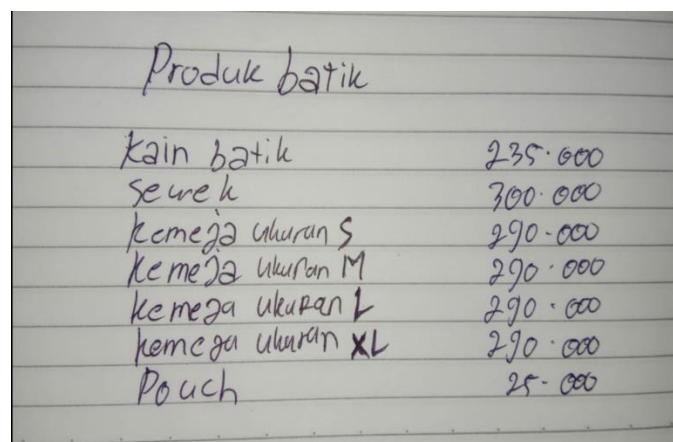 Produk batik
Kain batik 235.000
Sewek 300.000
kemeja ukuran S 290.000
Kemeja ukuran M 290.000
kemeja ukuran L 290.000
kemeja ukuran XL 290.000
Pouch 25.000